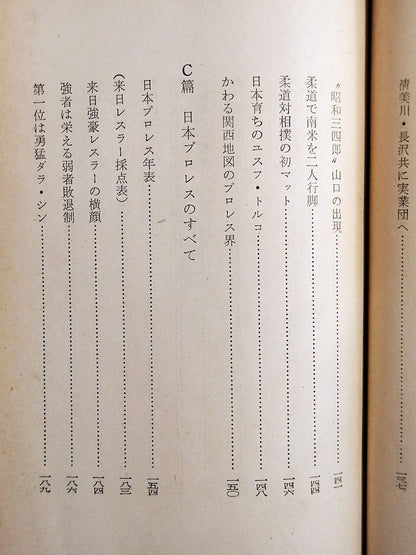 清美川・長沢共に実業団へ…………一三七
〝昭和三四郎〟山口の出現…………一四一
柔道で南米を二人行脚…………一四四
柔道対相撲の初マット…………一四六
日本育ちのユスフ・トルコ…………一四八
かわる関西地図のプロレス界…………一五〇
C篇 日本プロレスのすべて
日本プロレス年表…………一五四
(来日レスラー採点表)…………一八三
来日強豪レスラーの横顔…………一八四
強者は栄える弱者敗退制…………一八六
第一位は勇猛ダラ・シン…………一八九